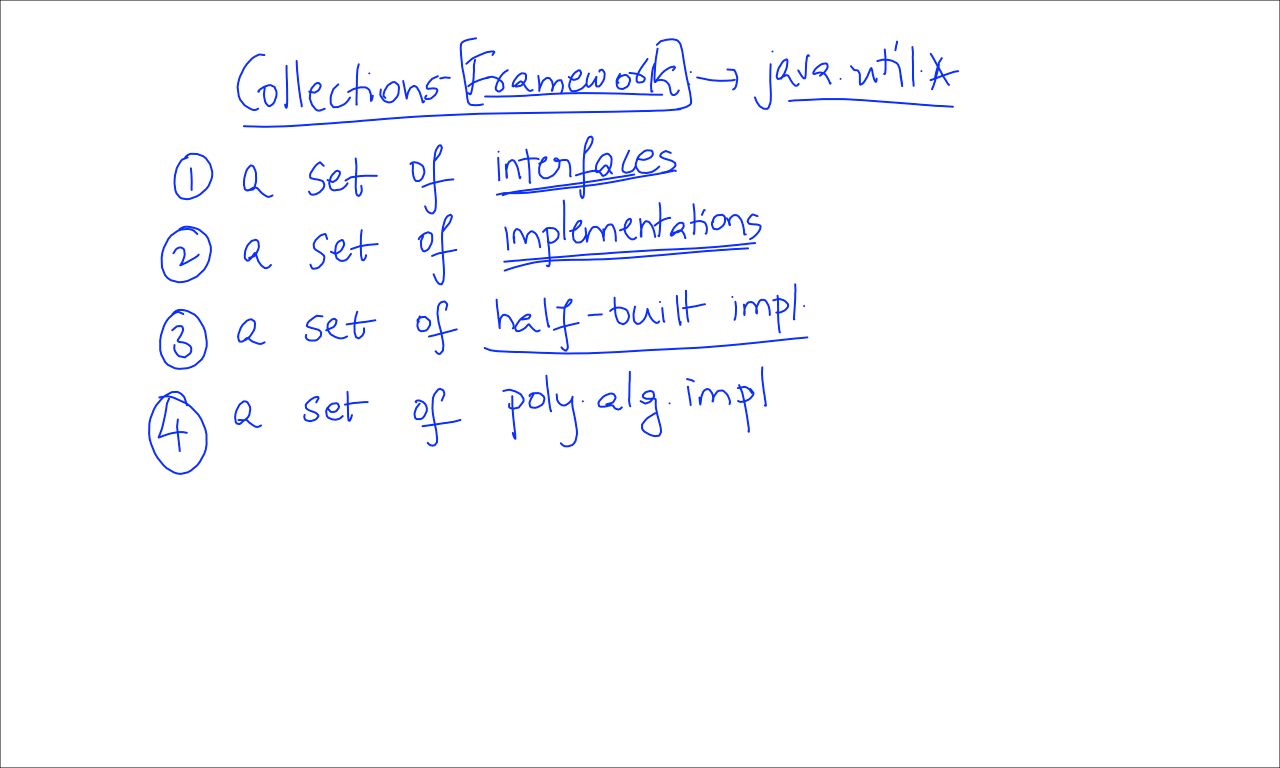 Collections [Framework] → java.util.*
① a set of interfaces
② a set of implementations
③ a set of half-built impl.
④ a set of poly. alg. impl